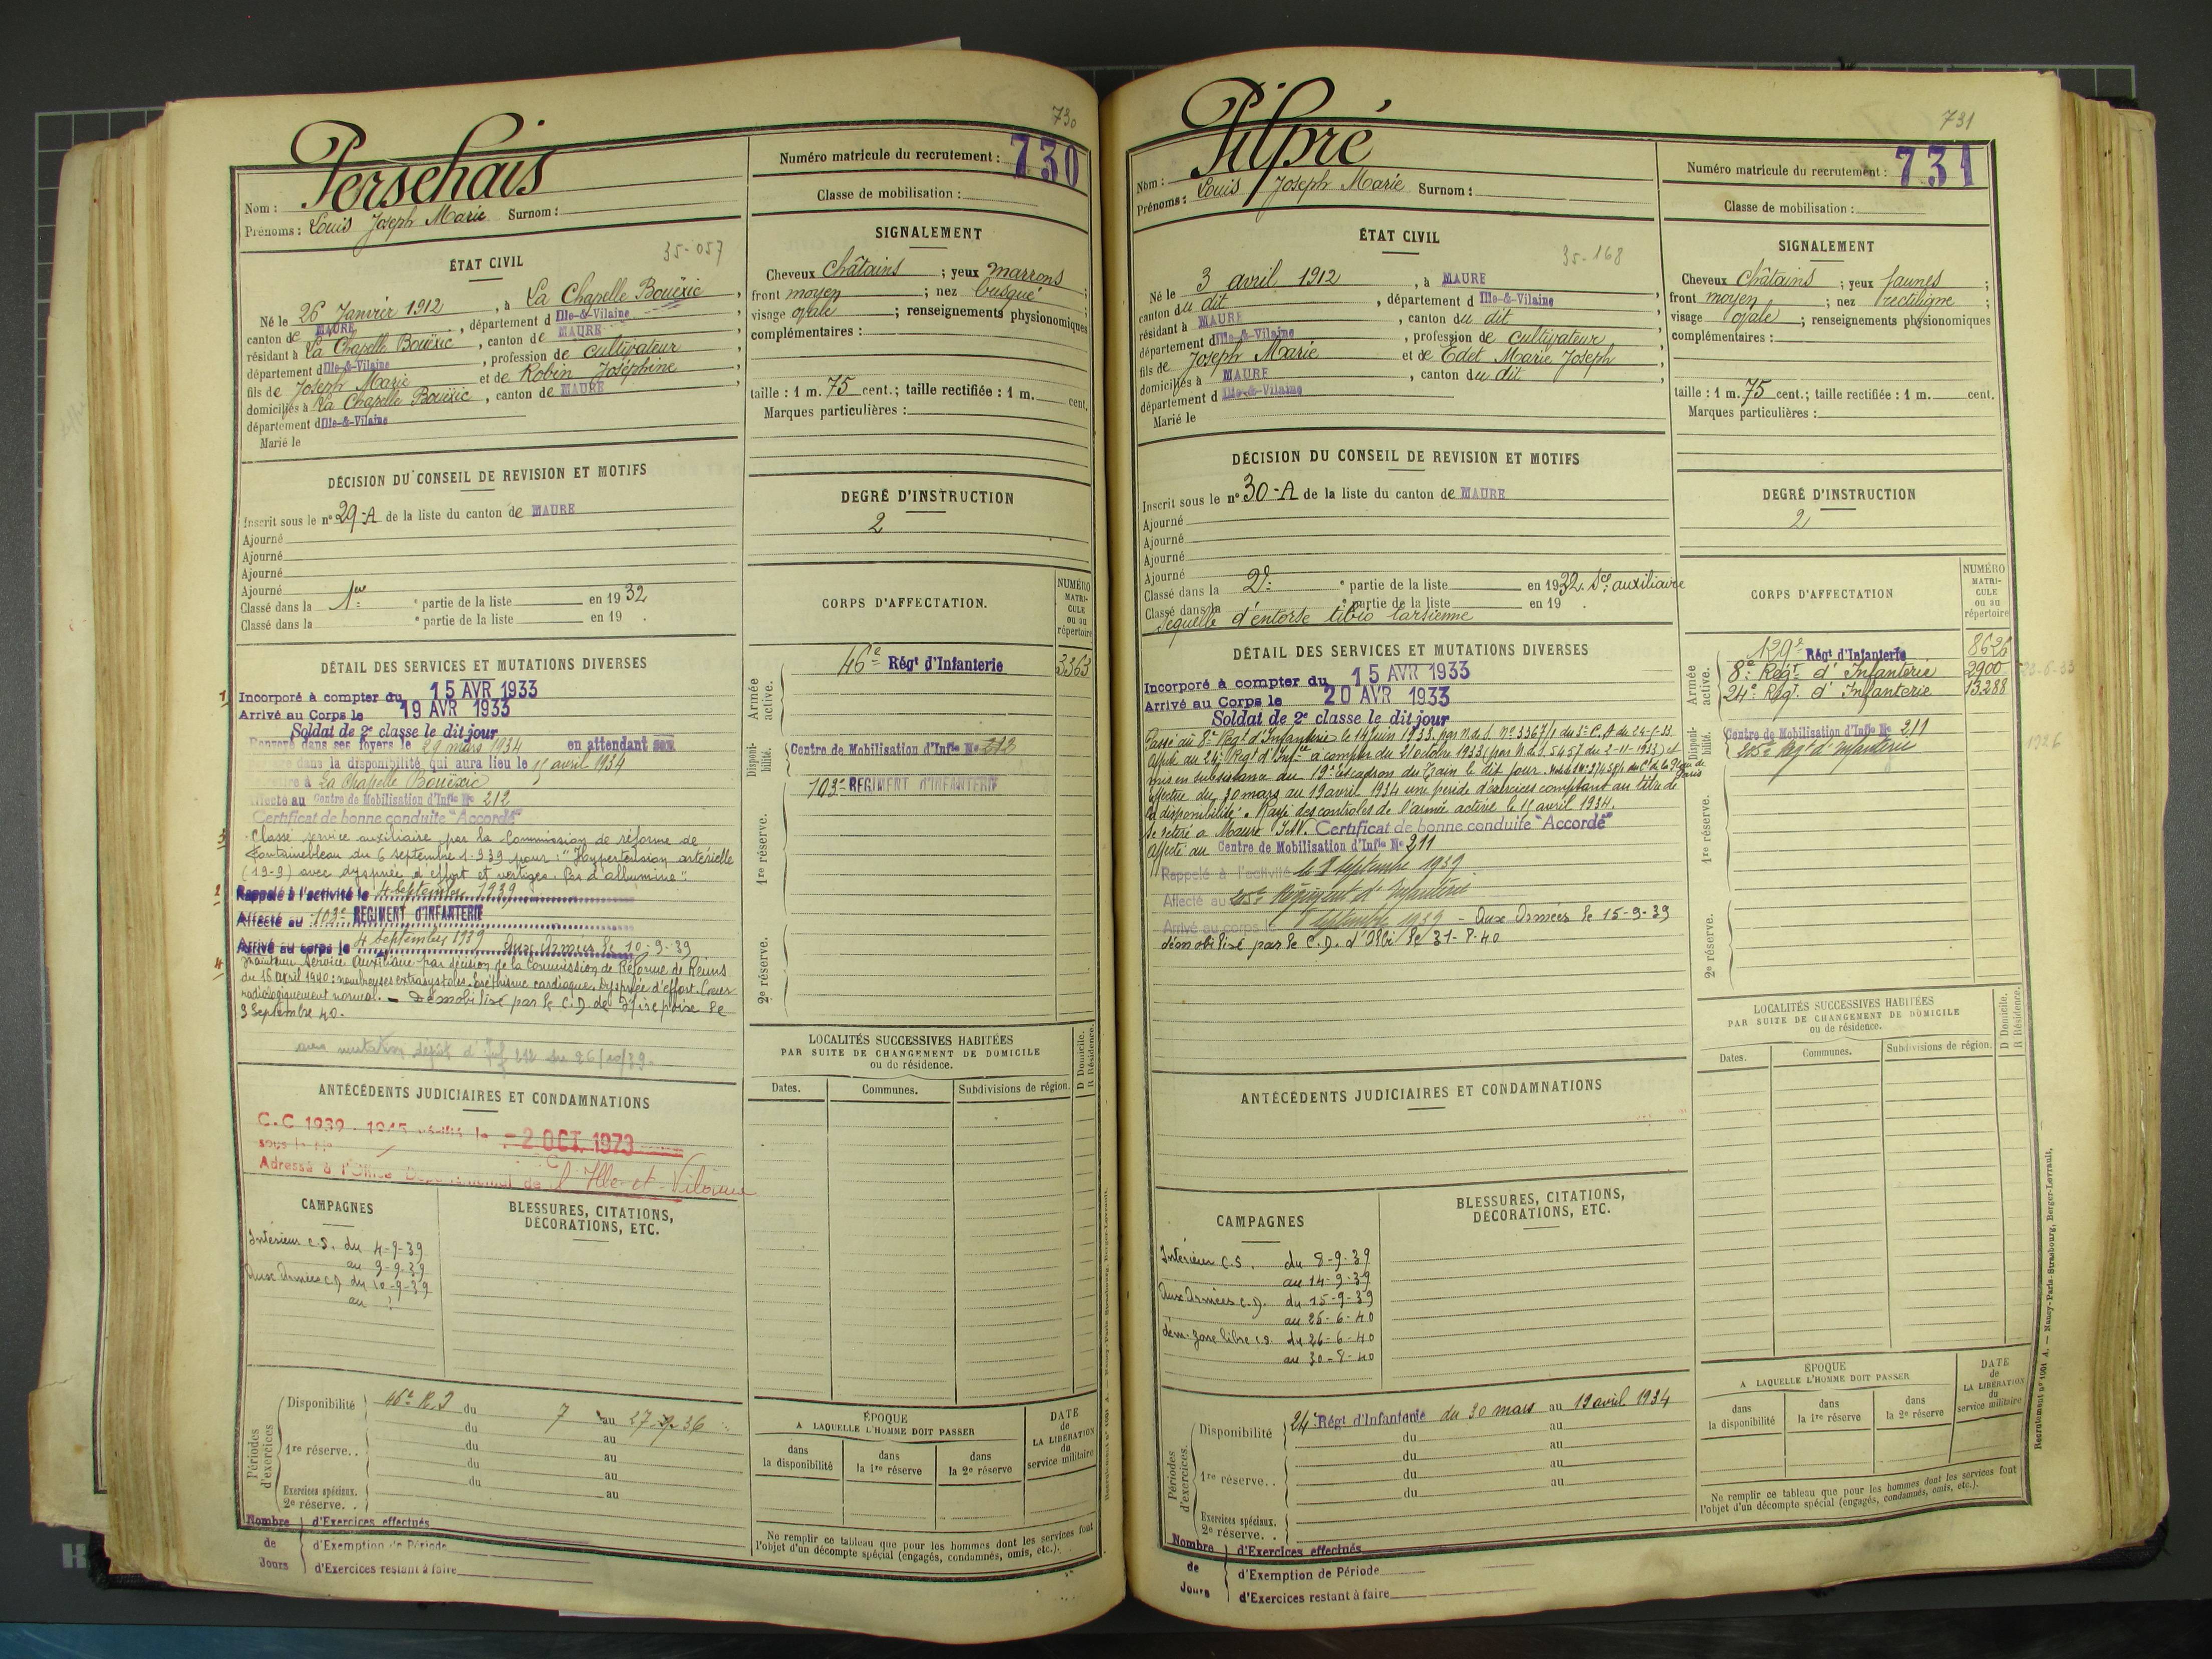 730
Perschais
Numéro matricule du recrutement : 730
Nom :
Classe de mobilisation :
Prénoms : Louis Joseph Marie Surnom :
SIGNALEMENT
ÉTAT CIVIL
35-057
Cheveux Châtains ; yeux marrons ;
front moyen ; nez busqué ;
visage ovale ; renseignements physionomiques
complémentaires :
taille : 1 m. 75 cent.; taille rectifiée : 1 m. cent.
Marques particulières :
Né le 26 Janvier 1912, à La Chapelle Bouëxic,
canton de MAURE, département d Ille-&-Vilaine,
résidant à La Chapelle Bouëxic, canton de MAURE,
département d Ille-&-Vilaine, profession de cultivateur,
fils de Joseph Marie et de Robin Joséphine,
domiciliés à La Chapelle Bouëxic, canton de MAURE,
département d Ille-&-Vilaine
Marié le
DÉCISION DU CONSEIL DE REVISION ET MOTIFS
Inscrit sous le n° 29-A de la liste du canton de MAURE
Ajourné
Ajourné
Ajourné
Ajourné
Classé dans la 1re e partie de la liste en 1932
Classé dans la e partie de la liste en 19 .
DEGRÉ D'INSTRUCTION
2
CORPS D'AFFECTATION.
NUMÉRO MATRI-CULE ou au répertoire
Armée active.
46e Régt d'Infanterie 3363
Disponi-bilité.
Centre de Mobilisation d'Infie No 212
103e REGIMENT D'INFANTERIE
1re réserve.
2e réserve.
DÉTAIL DES SERVICES ET MUTATIONS DIVERSES
1 Incorporé à compter du 15 AVR 1933
Arrivé au Corps le 19 AVR 1933
Soldat de 2e classe le dit jour
Renvoyé dans ses foyers le 29 mars 1934 en attendant son
passage dans la disponibilité qui aura lieu le 15 avril 1934
Se retire à La Chapelle Bouëxic
Affecté au Centre de Mobilisation d'Infie No 212
Certificat de bonne conduite "Accordé"
3 Classé service auxiliaire par la Commission de réforme de
Fontainebleau du 6 septembre 1939 pour : "Hypertension artérielle
(19-9) avec dyspnée d'effort et vertiges. Pas d'albumine".
2 Rappelé à l'activité le 4 septembre 1939
Affecté au 103e REGIMENT D'INFANTERIE
Arrivé au corps le 4 septembre 1939 Aux Armées le 10-9-39
4 Maintenu Service Auxiliaire par décision de la Commission de Réforme de Reims
du 16 avril 1940 : nombreuses extrasystoles. Eréthisme cardiaque. Dyspnée d'effort. Coeur
radiologiquement normal. - Démobilisé par le C.D. de Mirepoise le
3 Septembre 40.
mutation dépôt d'Inf 212 du 26/10/39.
ANTÉCÉDENTS JUDICIAIRES ET CONDAMNATIONS
C.C 1939-1945 le -2 OCT. 1973
sous le No
Adressé à l'Office Départemental de l'Ille-et-Vilaine
CAMPAGNES
Intérieur C.S. du 4-9-39
au 9-9-39
Aux Armées C.D du 10-9-39
au ?
BLESSURES, CITATIONS,
DÉCORATIONS, ETC.
LOCALITÉS SUCCESSIVES HABITÉES
PAR SUITE DE CHANGEMENT DE DOMICILE
ou de résidence.
Dates. Communes. Subdivisions de région.
D Domicile.
R Résidence.
Périodes d'exercices
Disponibilité 46e R.I du 7 au 27-9-36
du au
1re réserve. . du au
du au
du au
Exercices spéciaux.
2e réserve. . au
ÉPOQUE
A LAQUELLE L'HOMME DOIT PASSER
dans la disponibilité
dans la 1re réserve
dans la 2e réserve
DATE de LA LIBÉRATION du service militaire
Ne remplir ce tableau que pour les hommes dont les services font
l'objet d'un décompte spécial (engagés, condamnés, omis, etc.).
Nombre de Jours
d'Exercices effectués
d'Exemption de Période
d'Exercices restant à faire
731
Pilpré
Numéro matricule du recrutement : 731
Nom :
Prénoms : Louis Joseph Marie Surnom :
Classe de mobilisation :
ÉTAT CIVIL
35-168
Né le 3 avril 1912, à MAURE
canton du dit, département d Ille-&-Vilaine,
résidant à MAURE, canton du dit,
département d Ille-&-Vilaine, profession de cultivateur,
fils de Joseph Marie et de Edet Marie Joseph,
domiciliés à MAURE, canton du dit,
département d Ille-&-Vilaine
Marié le
SIGNALEMENT
Cheveux châtains ; yeux jaunes ;
front moyen ; nez rectiligne ;
visage ovale ; renseignements physionomiques
complémentaires :
taille : 1 m. 75 cent.; taille rectifiée : 1 m. cent.
Marques particulières :
DÉCISION DU CONSEIL DE REVISION ET MOTIFS
Inscrit sous le n° 30-A de la liste du canton de MAURE
Ajourné
Ajourné
Ajourné
Ajourné
Classé dans la 2e e partie de la liste en 1932. Sce auxiliaire
Classé dans la e partie de la liste en 19 .
Séquelle d'entorse tibio tarsienne
DEGRÉ D'INSTRUCTION
2
CORPS D'AFFECTATION
NUMÉRO MATRI-CULE ou au répertoire
Armée active.
129e Régt d'Infanterie 8626
8e Régt d'Infanterie 2900
24e Régt d'Infanterie 13.288
Disponi-bilité.
Centre de Mobilisation d'Infie No 211
205e Régt d'Infanterie
1re réserve.
2e réserve.
DÉTAIL DES SERVICES ET MUTATIONS DIVERSES
Incorporé à compter du 15 AVR 1933
Arrivé au Corps le 20 AVR 1933
Soldat de 2e classe le dit jour
Passé au 8e Régt d'Infanterie le 14 juin 1933, par N. de S. No 3367/1 du 3e C.A du 24-5-33
Affecté au 24e Régt d'Infie à compter du 21 octobre 1933 (par N.de S 5457 du 2-11-1933) et
mis en subsistance au 19e Escadron du Train le dit jour.
Effectue du 30 mars au 19 avril 1934 une période d'exercices comptant au titre de
la disponibilité. Rayé des contrôles de l'armée active le 15 avril 1934.
Se retire à Maure I&V. Certificat de bonne conduite "Accordé"
Affecté au Centre de Mobilisation d'Infie No 211
Rappelé à l'activité le 8 septembre 1939
Affecté au 205e Régiment d'Infanterie
Arrivé au corps le septembre 1939 - Aux Armées le 15-9-39
démobilisé par le C.D. d'Albi le 31-8-40
ANTÉCÉDENTS JUDICIAIRES ET CONDAMNATIONS
CAMPAGNES
Intérieur C.S. du 8-9-39
au 14-9-39
Aux Armées C.D. du 15-9-39
au 25-6-40
dém-zone libre C.S. du 26-6-40
au 30-8-40
BLESSURES, CITATIONS,
DÉCORATIONS, ETC.
LOCALITÉS SUCCESSIVES HABITÉES
PAR SUITE DE CHANGEMENT DE DOMICILE
ou de résidence.
Dates. Communes. Subdivisions de région.
D Domicile.
R Résidence.
Périodes d'exercices.
Disponibilité 24e Régt d'Infanterie du 30 mars au 19 avril 1934
du au
du au
1re réserve. . du au
du au
Exercices spéciaux.
2e réserve. .
ÉPOQUE
A LAQUELLE L'HOMME DOIT PASSER
dans la disponibilité
dans la 1re réserve
dans la 2e réserve
DATE de LA LIBÉRATION du service militaire
Ne remplir ce tableau que pour les hommes dont les services font
l'objet d'un décompte spécial (engagés, condamnés, omis, etc.).
Nombre de Jours
d'Exercices effectués
d'Exemption de Période
d'Exercices restant à faire
Recrutement n° 1001 A. — Nancy-Paris-Strasbourg, Berger-Levrault.